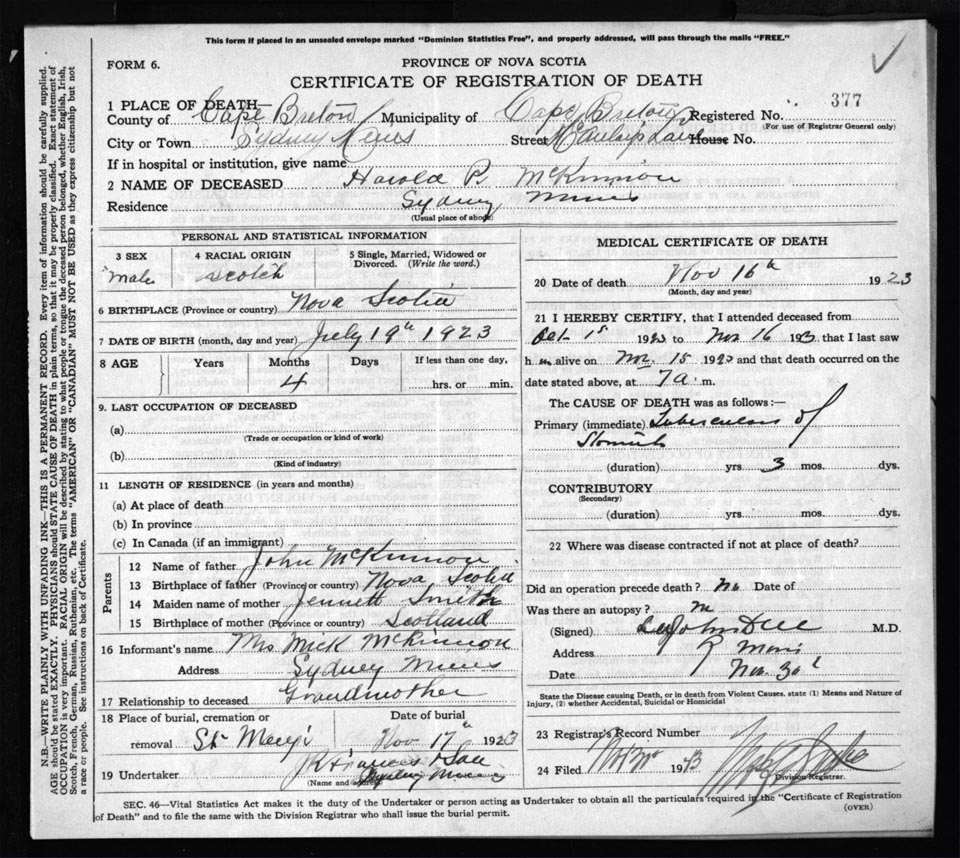 This form if placed in an unsealed envelope marked "Dominion Statistics Free", and properly addressed, will pass through the mails "FREE."
FORM 6.
PROVINCE OF NOVA SCOTIA
CERTIFICATE OF REGISTRATION OF DEATH
377
1 PLACE OF DEATH—
County of Cape Breton Municipality of Cape Breton Registered No.
(For use of Registrar General only)
City or Town Sydney Mines Street House No.
If in hospital or institution, give name
2 NAME OF DECEASED Harold P. McKinnon
Residence Sydney Mines
(Usual place of abode)
PERSONAL AND STATISTICAL INFORMATION
3 SEX 4 RACIAL ORIGIN 5 Single, Married, Widowed or Divorced. (Write the word.)
Male Scotch
6 BIRTHPLACE (Province or country) Nova Scotia
7 DATE OF BIRTH (month, day and year) July 19th 1923
8 AGE Years Months Days If less than one day,
4 hrs. or min.
9. LAST OCCUPATION OF DECEASED
(a)
(Trade or occupation or kind of work)
(b)
(Kind of industry)
11 LENGTH OF RESIDENCE (in years and months)
(a) At place of death
(b) In province
(c) In Canada (if an immigrant)
Parents
12 Name of father John McKinnon
13 Birthplace of father (Province or country) Nova Scotia
14 Maiden name of mother Jennett Smith
15 Birthplace of mother (Province or country) Scotland
16 Informant's name Mrs Mick McKinnon
Address Sydney Mines
17 Relationship to deceased Grandmother
18 Place of burial, cremation or Date of burial
removal Nov 17th 1923
19 Undertaker
Sydney Mines
(Name and address)
MEDICAL CERTIFICATE OF DEATH
20 Date of death Nov 16th 1923
(Month, day and year)
21 I HEREBY CERTIFY, that I attended deceased from
Oct. 1st 1923 to Nov 16 1923 that I last saw
h im alive on Nov. 15 1923 and that death occurred on the
date stated above, at 7 a. m.
The CAUSE OF DEATH was as follows:—
Primary (immediate) Tuberculosis of
Stomach
(duration) yrs 3 mos. dys.
CONTRIBUTORY
(Secondary)
(duration) yrs. mos. dys.
22 Where was disease contracted if not at place of death?
Did an operation precede death? No Date of
Was there an autopsy? No
(Signed) M.D.
Address Mines
Date Nov. 30
State the Disease causing Death, or in death from Violent Causes, state (1) Means and Nature of
Injury, (2) whether Accidental, Suicidal or Homicidal
23 Registrar's Record Number
24 Filed 1923
Division Registrar.
SEC. 46—Vital Statistics Act makes it the duty of the Undertaker or person acting as Undertaker to obtain all the particulars required in the "Certificate of Registration
of Death" and to file the same with the Division Registrar who shall issue the burial permit.
(OVER)
N.B.—WRITE PLAINLY WITH UNFADING INK—THIS IS A PERMANENT RECORD. Every item of information should be carefully supplied.
AGE should be stated EXACTLY. PHYSICIANS should STATE CAUSE OF DEATH in plain terms, so that it may be properly classified. Exact statement of
OCCUPATION is very important. RACIAL ORIGIN will be described by stating to what people or tongue the deceased person belonged, whether English, Irish,
Scotch, French, German, Russian, Ruthenian, etc. The terms "AMERICAN" OR "CANADIAN" MUST NOT BE USED as they express citizenship but not
a race or people. See instructions on back of Certificate.